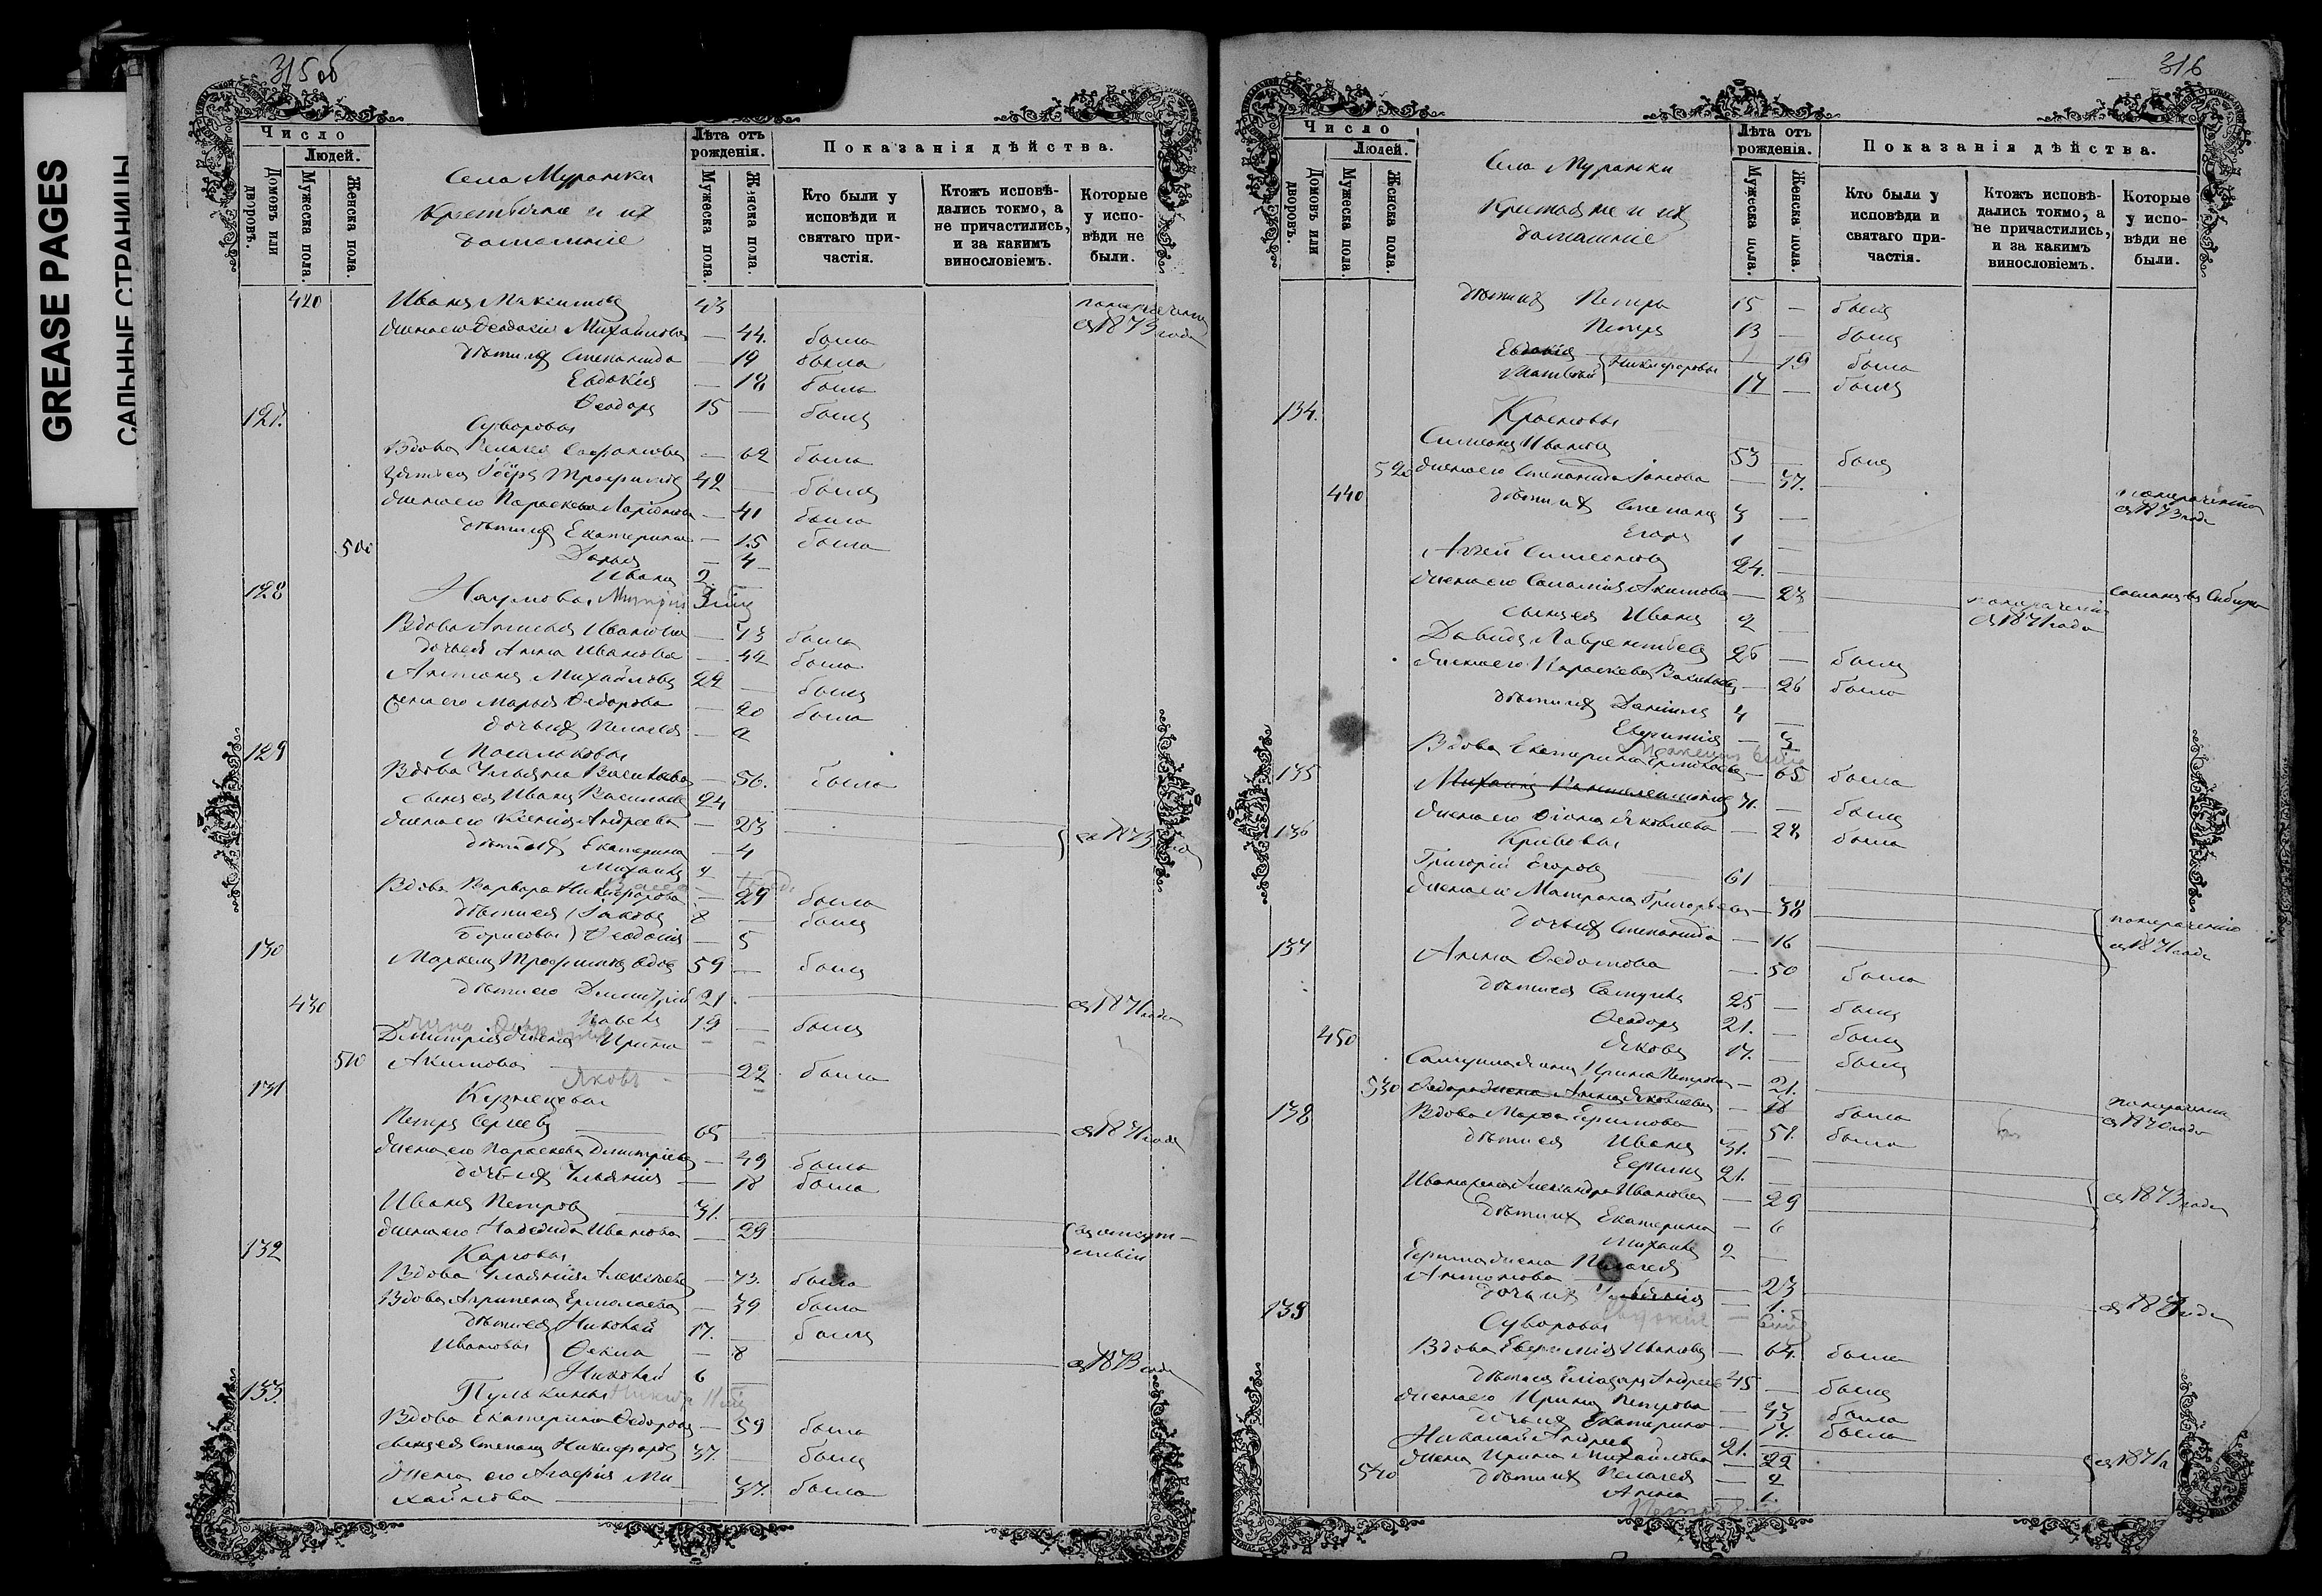 GREASE PAGES
САЛЬНЫЕ СТРАНИЦЫ
315об
Число
Людей.
Домовъ или дворовъ.
Мужеска пола.
Женска пола.
Лѣта отъ рожденія.
Мужеска пола
Женска пола.
Показанія дѣйства.
Кто были у исповѣди и святаго причастія.
Ктожъ исповѣдались токмо, а не причастились, и за какимъ винословіемъ.
Которые у исповѣди не были.
Села Муранки
Крестьяне и их
домашніе
420 Иванъ Максимовъ 43
съ 1873 года
Жена его Феодосія Михайлова — 44. была
Дѣти ихъ Степанида — 19 была
Евдокія — 18 была
Феодоръ 15 — былъ
127. Суворовы
Вдова Пелагея — 62 была
Зять ея Трофимовъ 42 — былъ
Жена его Параскева Ларіонова — 41 была
Дѣти ихъ Екатерина — 15 была
500 Дарья — 4
Иванъ 2
128 Наумовы
Вдова Иванова — 73 была
Дочь ея Анна Иванова — 42 была
Антонъ Михайловъ 22 — былъ
Жена его Марья Федорова — 20 была
Дочь ихъ Пелагея — 2
129
Вдова Ульяна Васильева — 56. была
Сынъ ея Иванъ Васильевъ 24
Жена его Ксенія Андреева — 23
съ 1873 года
Дѣти ихъ Екатерина — 4
Михаилъ 2
Вдова Варвара Никифорова — 29 была
Дѣти ея Іаковъ 8 — былъ
Борисовы Феодосія — 5
130 Трофимовъ вдовъ 59 — былъ
Дѣти его Димитрій 21.
съ 1871 года
430 Павелъ 19 — былъ
Димитрія жена Ирина
510 Акимова 22 была
Яковъ
131 Кузнецовы
Петръ Сергеевъ 65
съ 1871 года
Жена его Параскева Дмитріева — 49 была
Дочь ихъ Ульянія — 18 была
Иванъ Петровъ 31.
Жена его Надежда Ивановна — 29
въ отсутствіи
132 Карповы
Вдова Ульянія Алексѣева — 73. была
Вдова Агрипена Ермолаева — 39 была
Дѣти ея Николай 17. — былъ
Ивановы Фекла — 8
Николай 6
съ 1873 года
133. Пулькины
Вдова Екатерина Федорова — 59 была
Сынъ ея Степанъ Никифоровъ 37. — былъ
Жена его Агафія Ми-
хайлова 37. была
316
Число
Людей.
Домовъ или дворовъ.
Мужеска пола.
Женска пола.
Лѣта отъ рожденія.
Мужеска пола.
Женска пола.
Показанія дѣйства.
Кто были у исповѣди и святаго причастія.
Ктожъ исповѣдались токмо, а не причастились, и за какимъ винословіемъ.
Которые у исповѣди не были.
Села Муранки
Крестьяне и их
домашніе
Дѣти ихъ Петръ 15 — былъ
Петръ 13 — былъ
Евдокія Никифоровы 19 была
17 — былъ
134. Красновы
Симеонъ Ивановъ 53 — былъ
520 Жена его Степанида — 37.
съ 1873 года
440 Дѣти ихъ Степанъ 3 —
Егоръ 1 —
Симеоновъ 24. —
сосланъ въ Сибирь
Жена его Акимова — 28
съ 1871 года
Сынъ ея Иванъ 2 —
Давидъ Лаврентьевъ 26 — былъ
Жена его Параскева — 26 была
Дѣти ихъ Даніилъ 4 —
Евфимія — 3
Вдова Екатерина Ермолаева — 65 была
135 Михаилъ Пантелеимоновъ — былъ
Жена его Яковлева — 28 была
136 Кривовы
Григорій Егоровъ 61
Жена его Матрона Григорьева — 38
съ 1871 года
Дочь ихъ Степанида — 16
137 Анна Федотова — 50 была
Дѣти ея Самуилъ 25 — былъ
Феодоръ 21. — былъ
450 Яковъ 17. — былъ
Самуила жена Ирина Петрова — 21.
съ 1870 года
530 Федора жена Анна Яковлева — 18 была
138 Вдова Марфа — 51. была
Дѣти ея Иванъ 31. —
21. —
Ивана жена Александра Иванова — 29
съ 1873 года
Дѣти ихъ Екатерина — 6
Михаилъ 2 —
жена Пелагея
Антонова — 23
Дочь ихъ Ульянія — 1.
Евдокія
139 Суворовы
Вдова Евфимія Иванова — 64. была
Андреевъ 45 — былъ
Жена его Ирина Петрова — 43 была
Дочь ихъ Екатерина — 17. была
Николай Андреевъ 21.
Жена Ирина Михайлова — 22
съ 1871
540 Дѣти ихъ Пелагея — 2
Анна — 1.